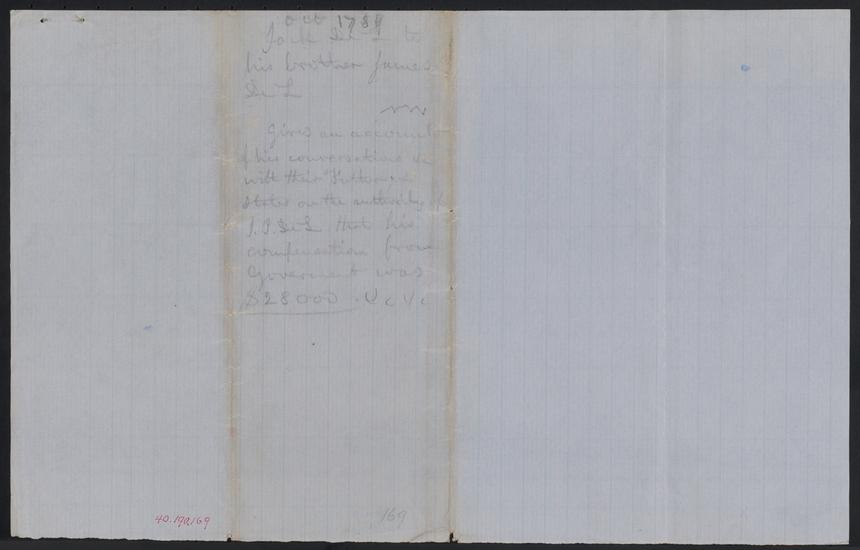 Oct 1789
Jack De L to
his brother James
De L
Gives an account
of his conversations &c
with their Tutor
States on the authority of
J. P. De L that his
compensation from
Goverment was
$28000 . &c &c
40.190.169
169